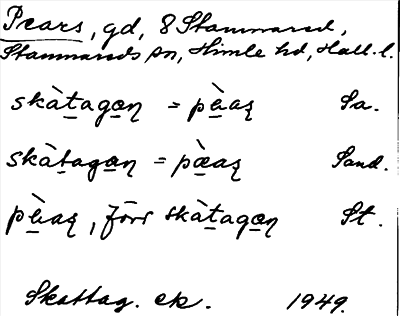 Pears, gd, 8 Stammared,
Stammareds sn, Himle hd, Hall. l.
skàtagan = pèaʂ Sa.
skàtagan = pæ̀aʂ Sand.
pèaʂ, förr skàtagan St.
Skattag. ek. 1949.